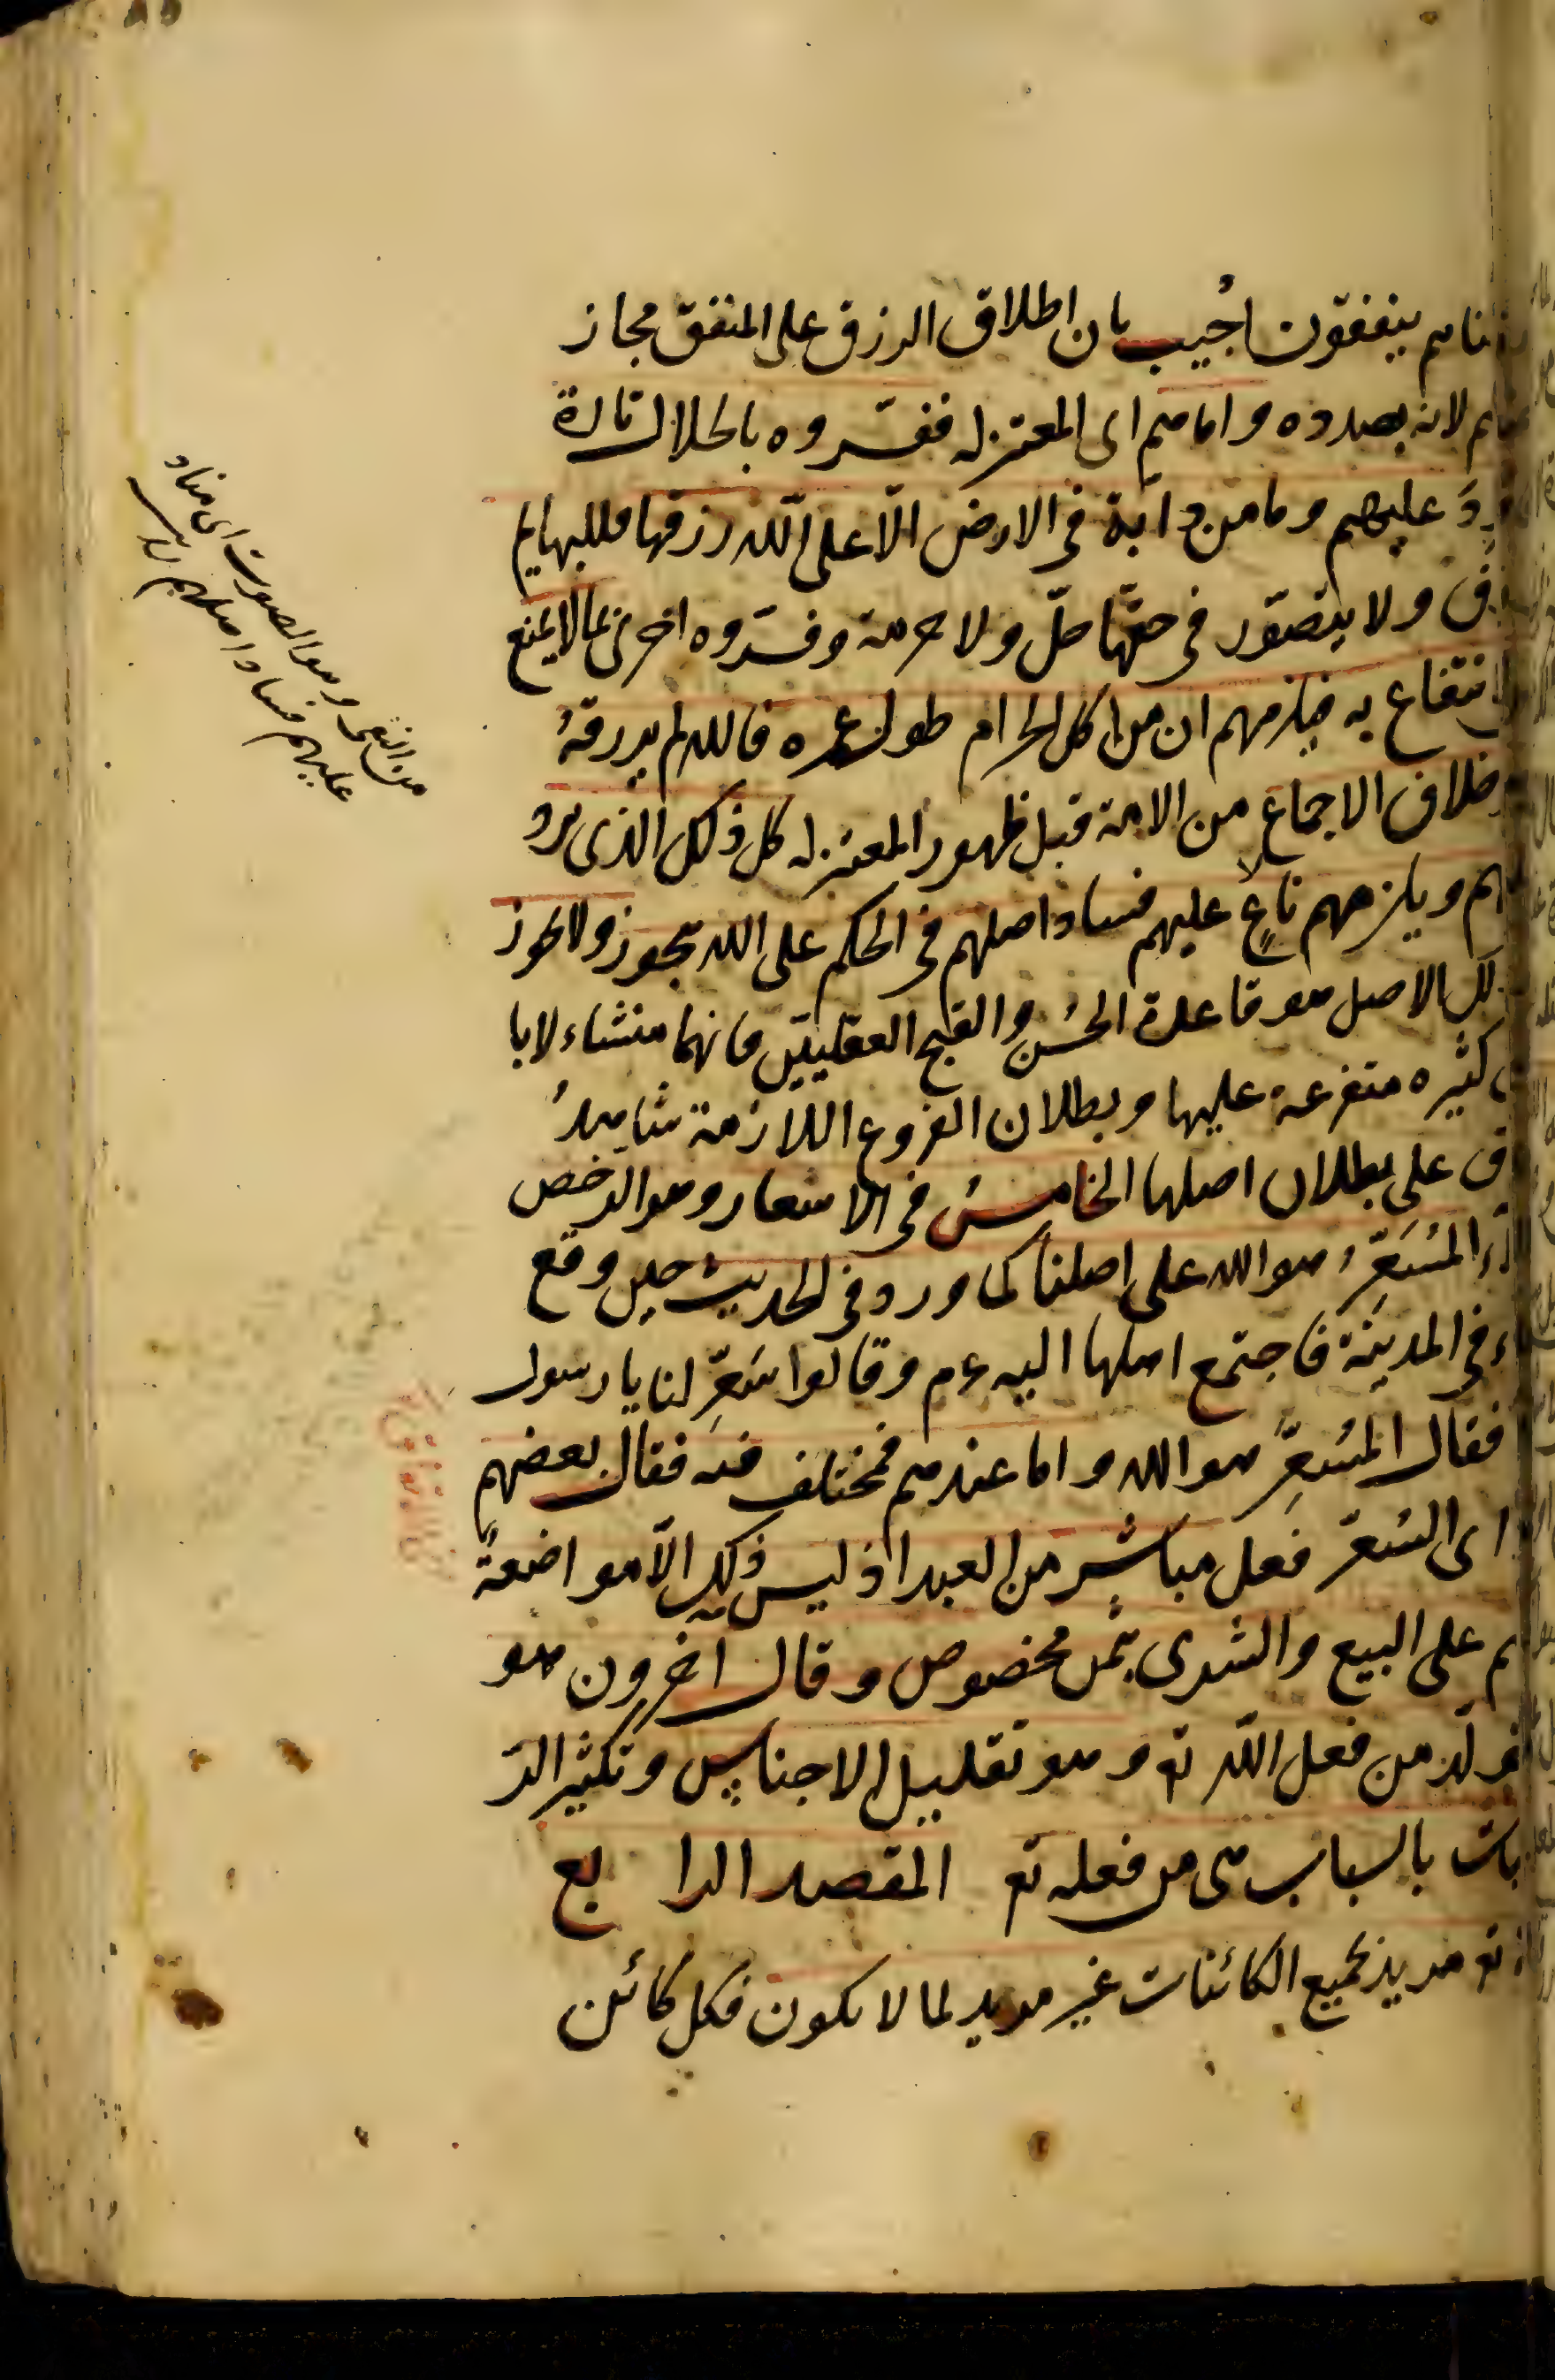 رزقناهم ينفقون اجُيب بان اطلاق الرزق على المنفق مجاز
لانه بصدده واما هم اى المعتزله ففسّروه بالحلال تارة
عليهم وما من دآبة فى الارض الّا على اللّه رزقها فللبهايم
رزق ولا يتصّور فى حقّها حلّ ولا حرمة وفسّروه اخرى بما لا يمنع
الانتفاع به فيلزمهم ان من اكل الحرام طول عمره فالله لم يرزقهُ
خلاف الاجماع من الامة قبل ظهور المعتزله كل ذلك الذى يرد
عليهم ويلزمهم ناعٍ عليهم فساد اصلهم فى الحكم على الله بيجوز ولا يجوز
الاصل هو قاعدة الحُسن والقبح العقليتين فانهما منشاء لابا
كثيره متفرعة عليها وبطلان الفروع اللازمة شاهدُ
على بطلان اصلها الخامسُ فى الاسعار وهو الرخص
المُسَعِّرُ هو الله على اصلنا كما ورد فى الحديث حين وقع
فى المدينة فاجتمع اهلها اليه عم وقالوا سَعِّر لنا يا رسول
فقال المُسَعِّر هو الله واما عندهم فمختلف فيه فقال بعضهم
اى السّعر فعل مباشر من العبد اذ ليس ذلك الّا مواضعةً
على البيع والشرى بثمن مخصوص وقال اخرون هو
متولّد من فعل اللّه تع وهو تقليل الاجناس وتكثير الر
بالسباب هى من فعله تع المقصد الرابع
انه تع مريد لجميع الكائنات غير مريد لما لا يكون فكل كائن
من النعى وهو الصوت اى مناد
عليهم فساد اصلهم